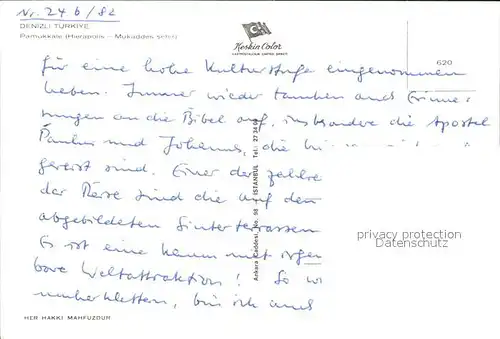 Nr. 246/82
DENIZLI TÜRKIYE
Pamukkale (Hierapolis - Mukaddes şehir)
Keskin Color
620
für eine hohe Kulturstufe eingenommen
haben. Immer wieder tauchen auch Erinne-
rungen an die Bibel auf, insbesondere die Apostel
Paulus und Johannes, die
gereist sind. Einer der
der Reise sind die auf den
abgebildeten Sinterterrassen
Es ist eine kaum mit irgen
bare Weltattraktion! So
umherkletten, bin ich auch
Ankara Caddesi, No. 98 - ISTANBUL Tel: 27 34 04
privacy protection
Datenschutz
HER HAKKI MAHFUZDUR